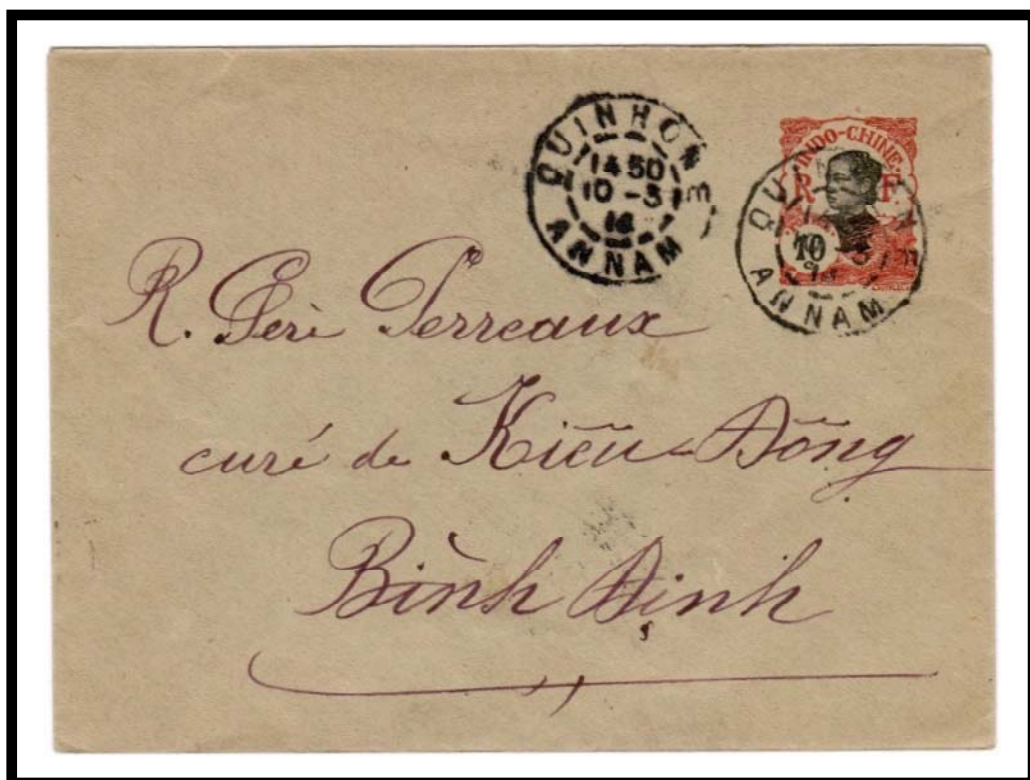 QUINHON
14 50
10 -3
ANNAM
INDO-CHINE
R F
10
QUINHON
ANNAM
R. Père Perreaux
curé de Kiều-Đông
Bình Định